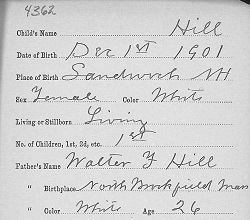 4362
Child's Name Hill
Date of Birth Dec 1st 1901
Place of Birth Sandwich NH
Sex Female Color White
Living or Stillborn Living
No. of Children, 1st, 2d, etc. 1st
Father's Name Walter F Hill
" Birthplace North Brookfield Mass
" Color White Age 26